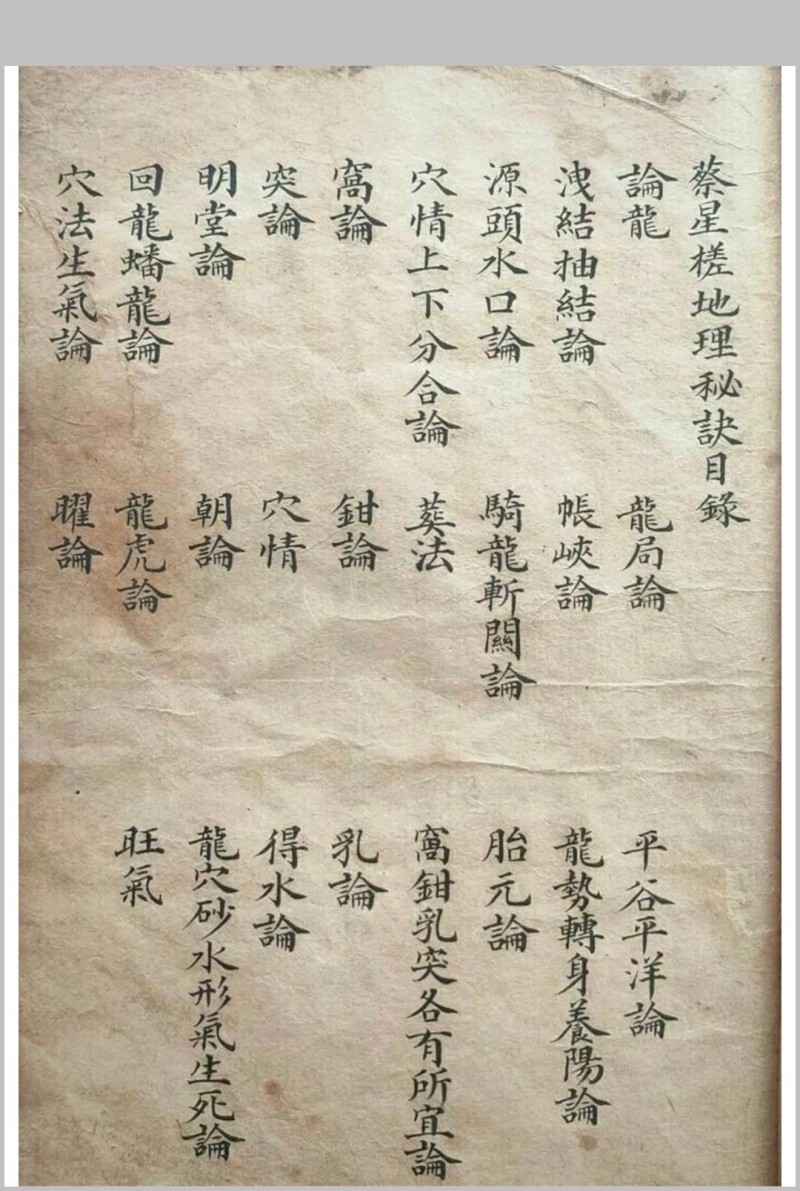 蔡星槎地理秘訣目錄
論龍 龍局論 平谷平洋論
洩結抽結論 帳峽論 龍勢轉身養陽論
源頭水口論 騎龍斬關論 胎元論
穴情上下分合論 葬法 窩鉗乳突各有所宜論
窩論 鉗論 乳論
突論 穴情 得水論
明堂論 朝論 龍穴砂水形氣生死論
回龍蟠龍論 龍虎論 旺氣
穴法生氣論 曜論